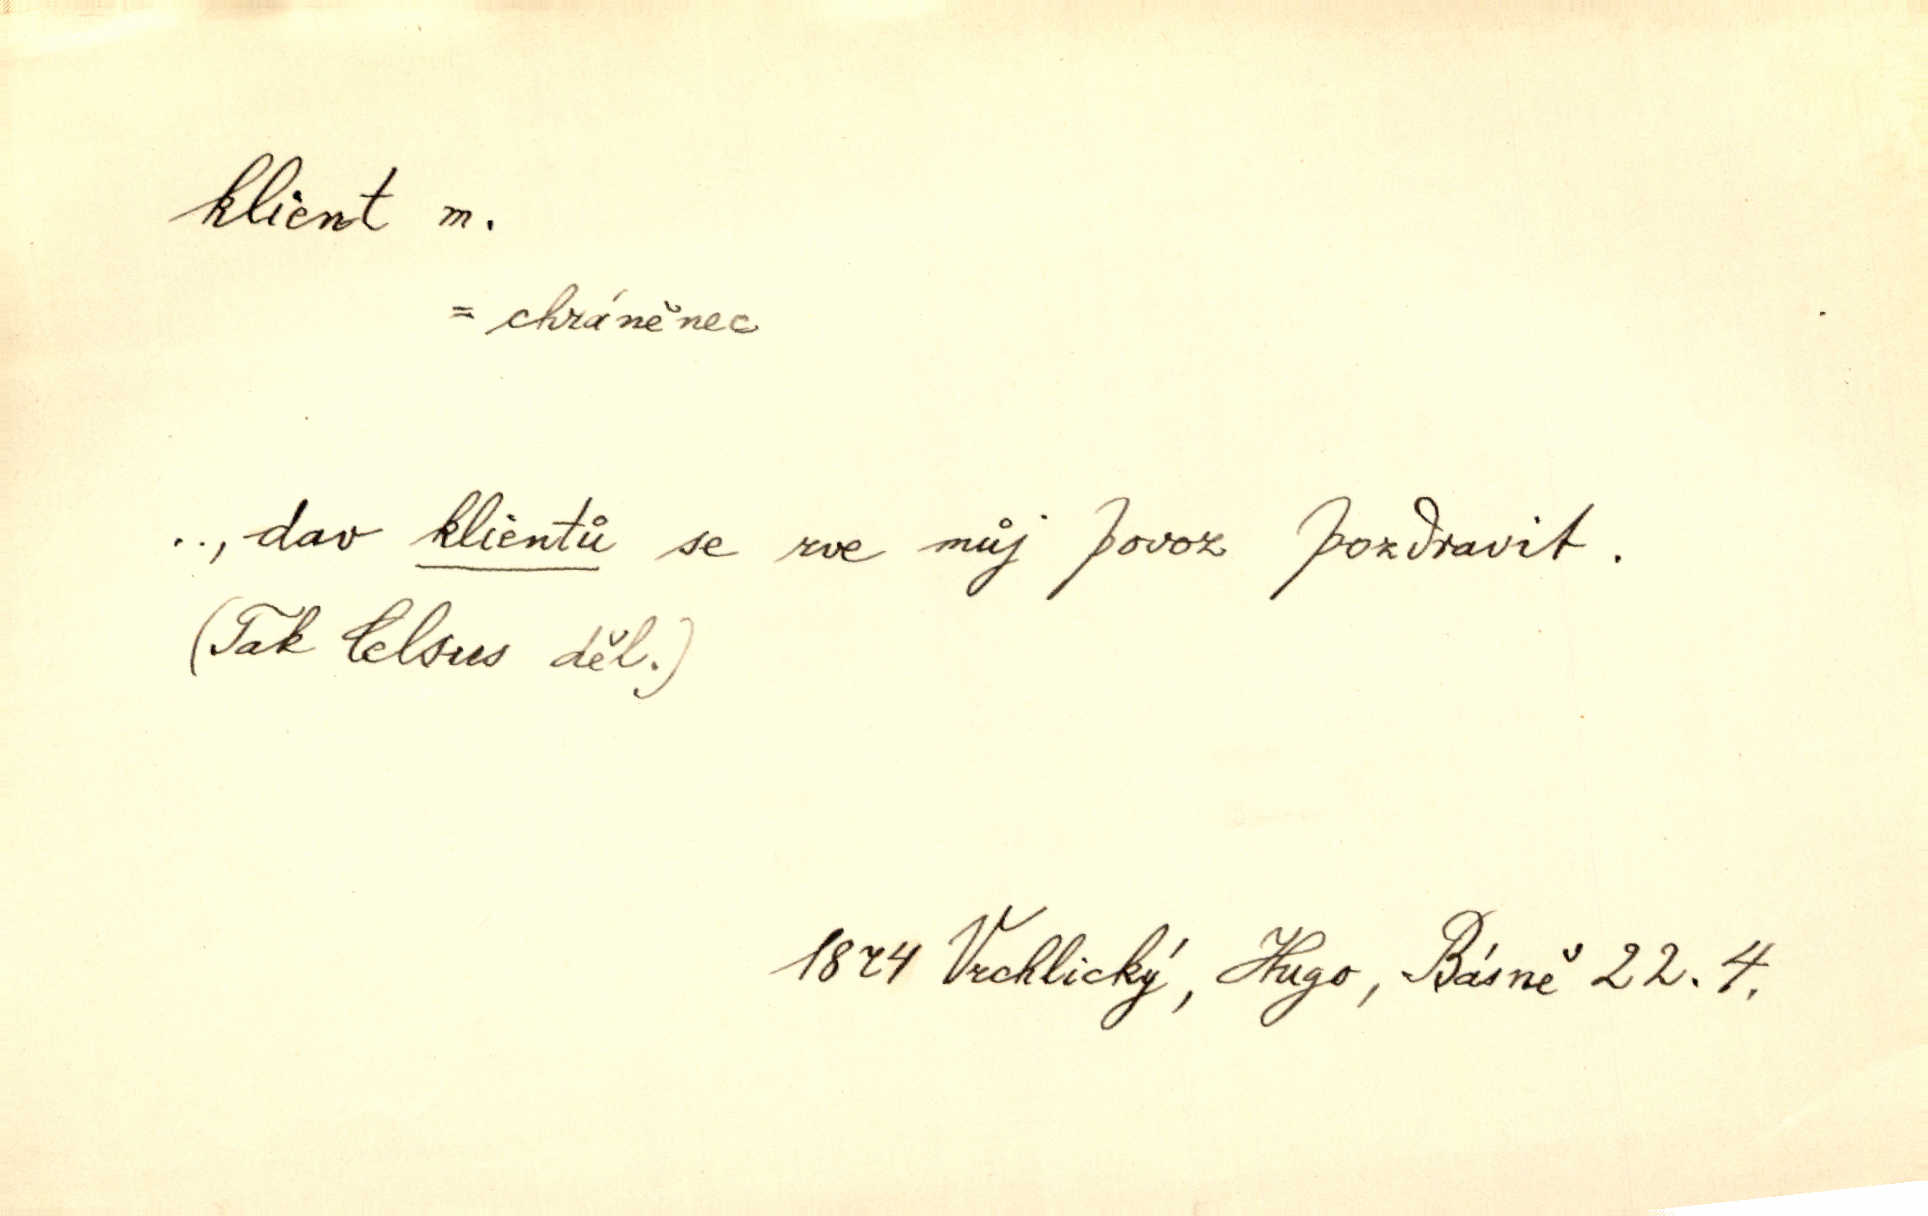 klient m.
= chráněnec
.., dav klientů se rve můj povoz pozdravit.
(Tak Celsus děl.)
1874 Vrchlický, Hugo, Básně 22. 4.